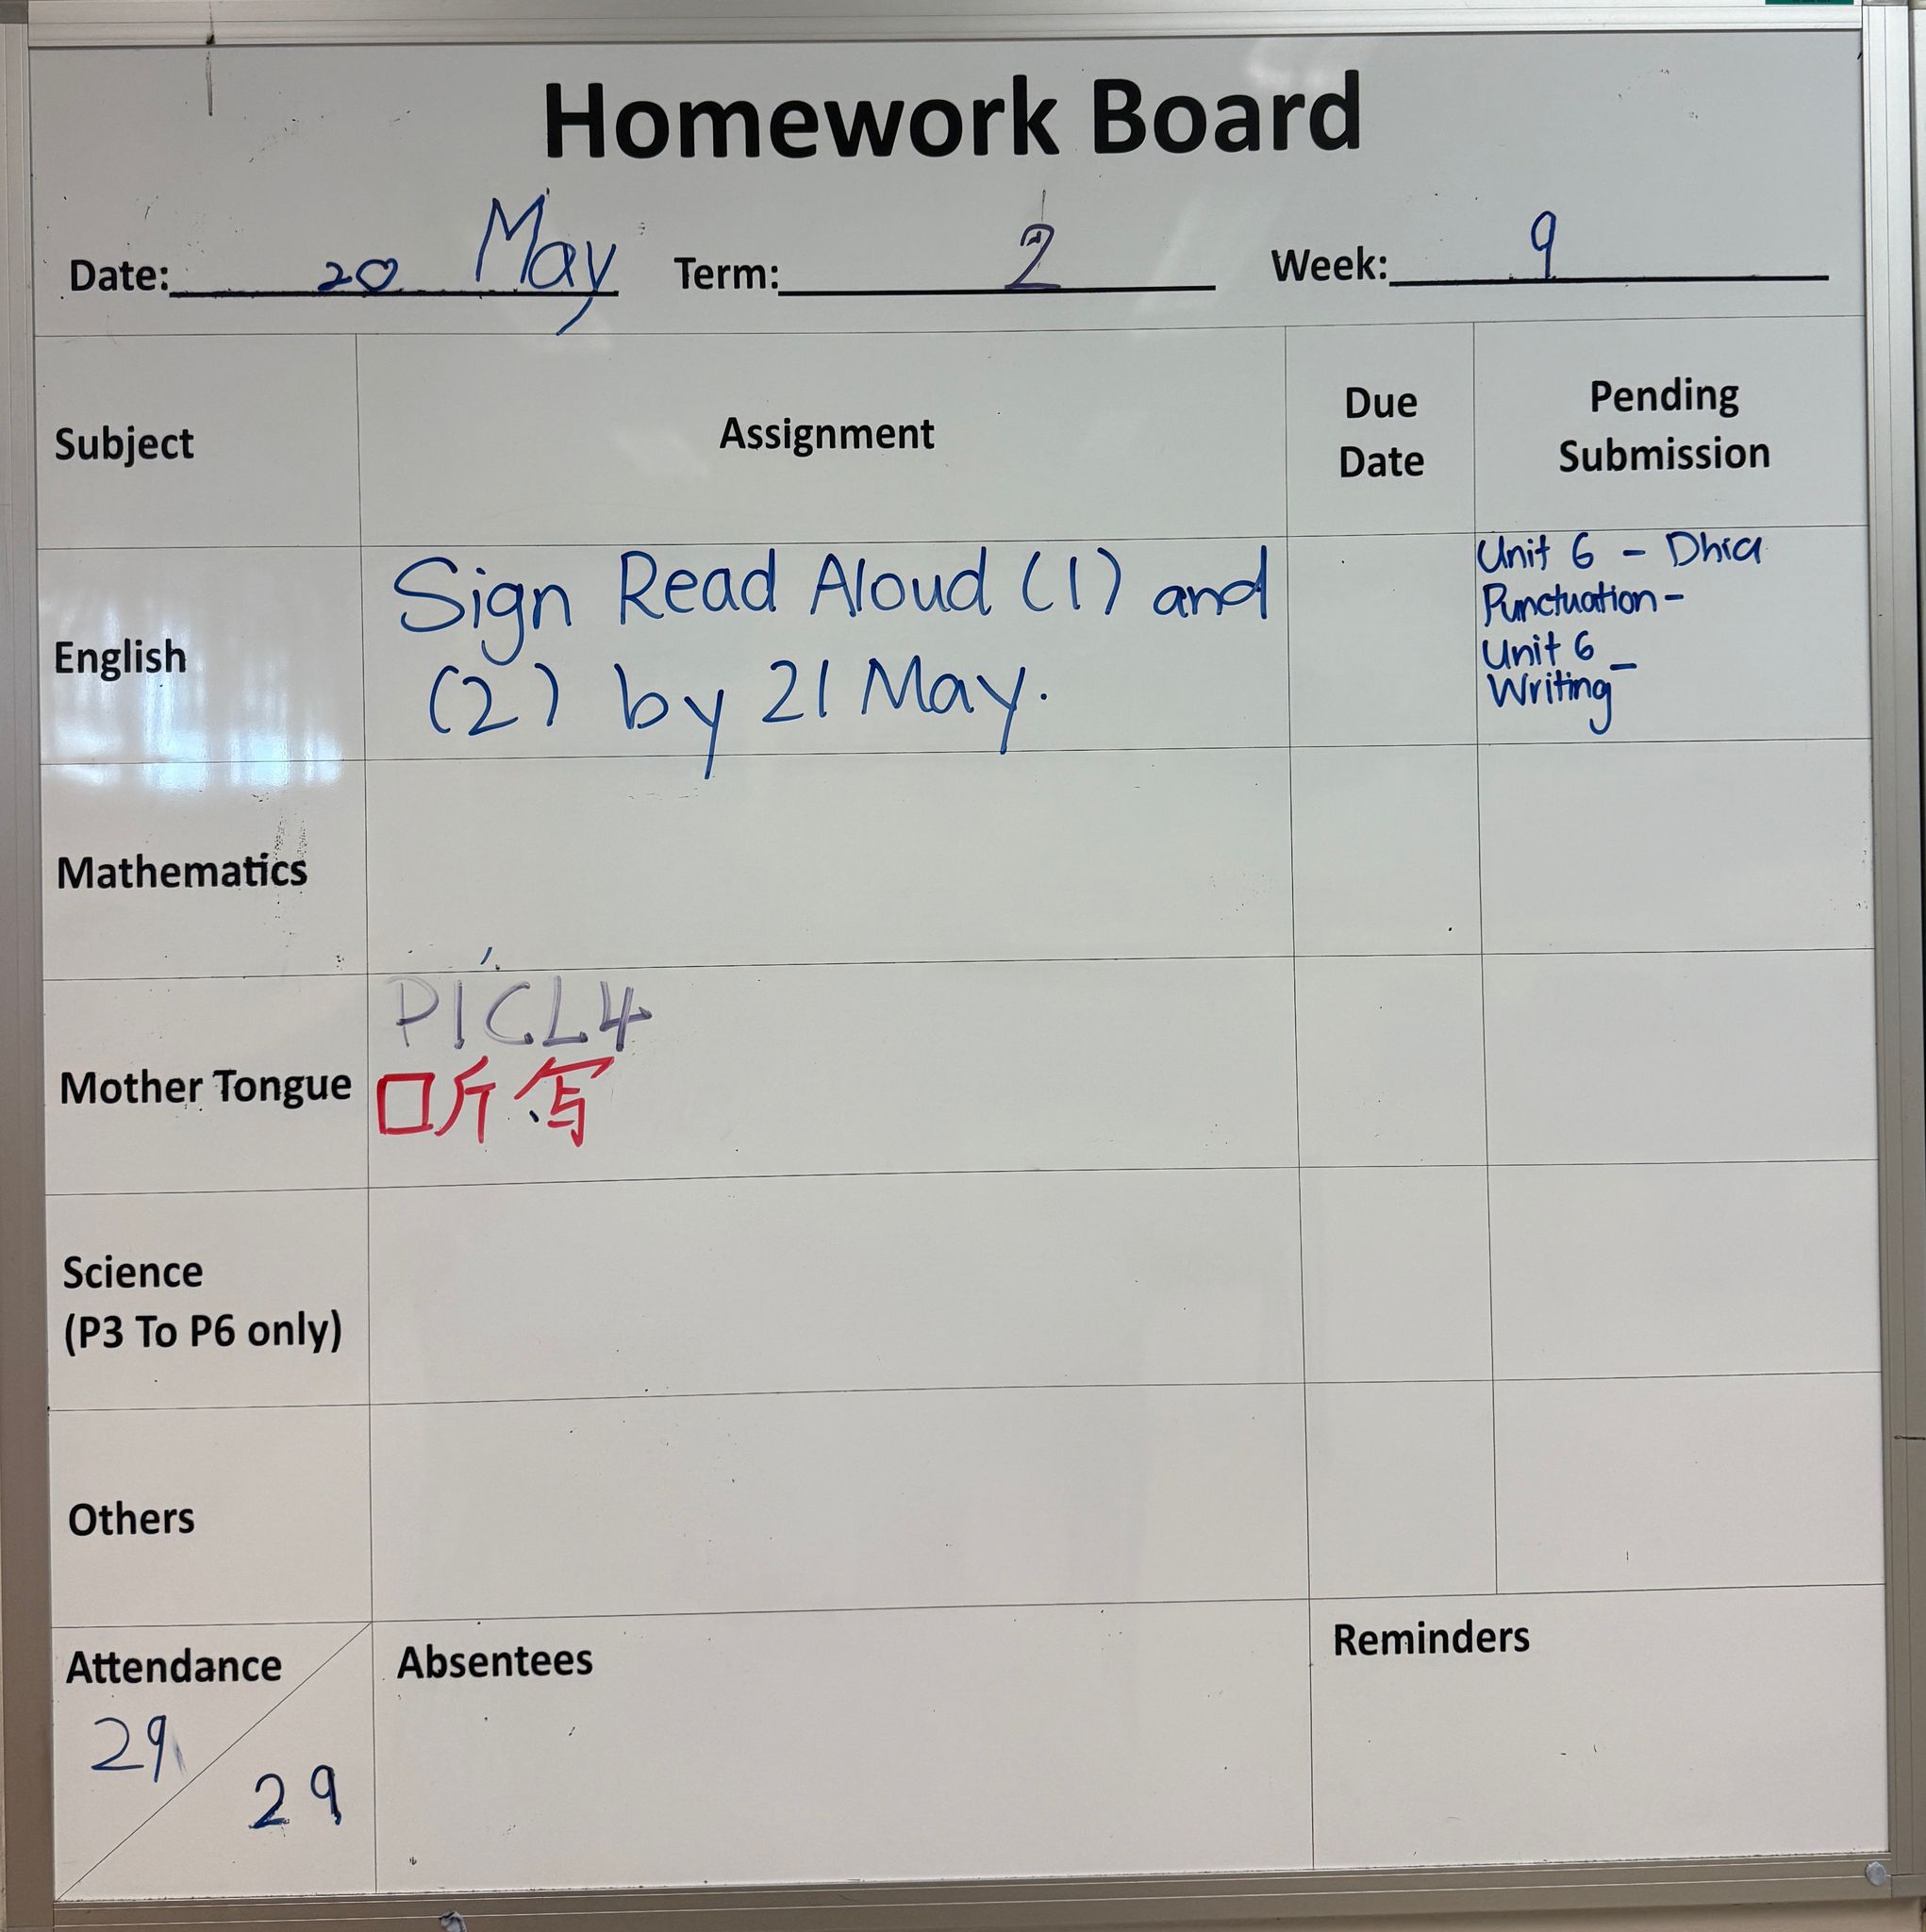 Homework Board
Date: 20 May Term: 2 Week: 9
Subject Assignment Due Date Pending Submission
English
Sign Read Aloud (1) and
(2) by 21 May.
Unit 6 - Dhia
Punctuation -
Unit 6 -
Writing
Mathematics
Mother Tongue
P1CL4
听写
Science
(P3 To P6 only)
Others
Attendance
29
29
Absentees
Reminders